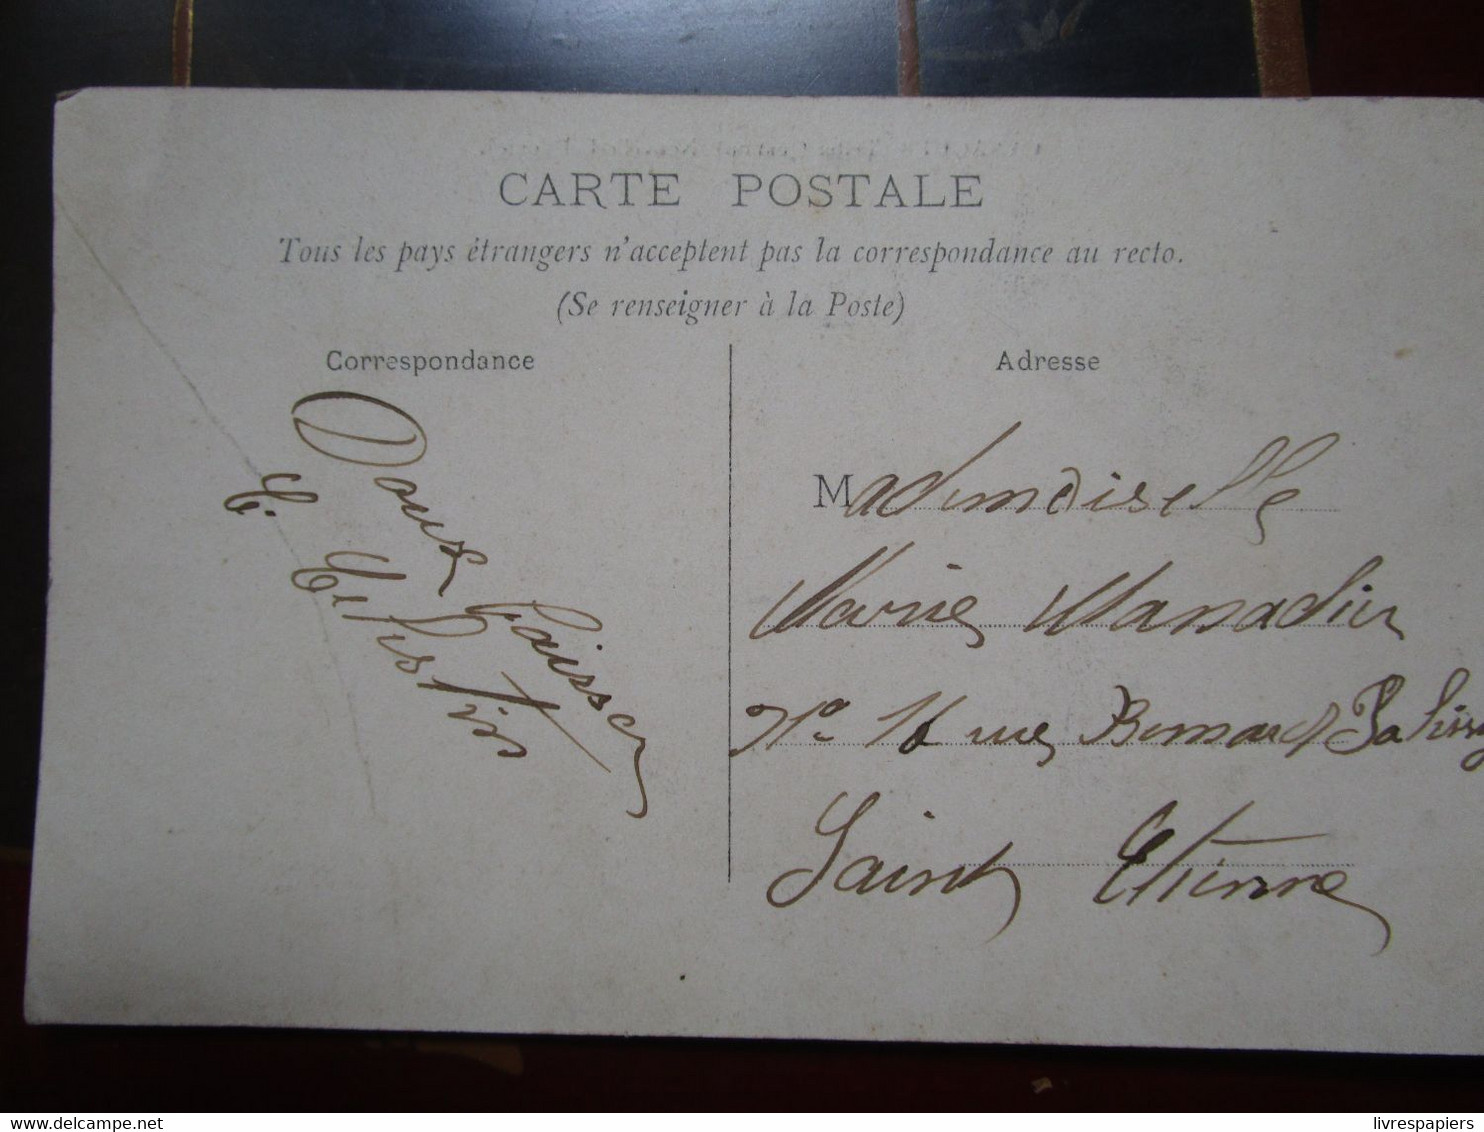 CARTE POSTALE
Tous les pays étrangers n'acceptent pas la correspondance au recto.
(Se renseigner à la Poste)
Correspondance
Doux baisser
Adresse
Mademoiselle
Marie Manadier
N° 16 rue Bernard Palissy
Saint Etienne
livrespapiers
www.delcampe.net